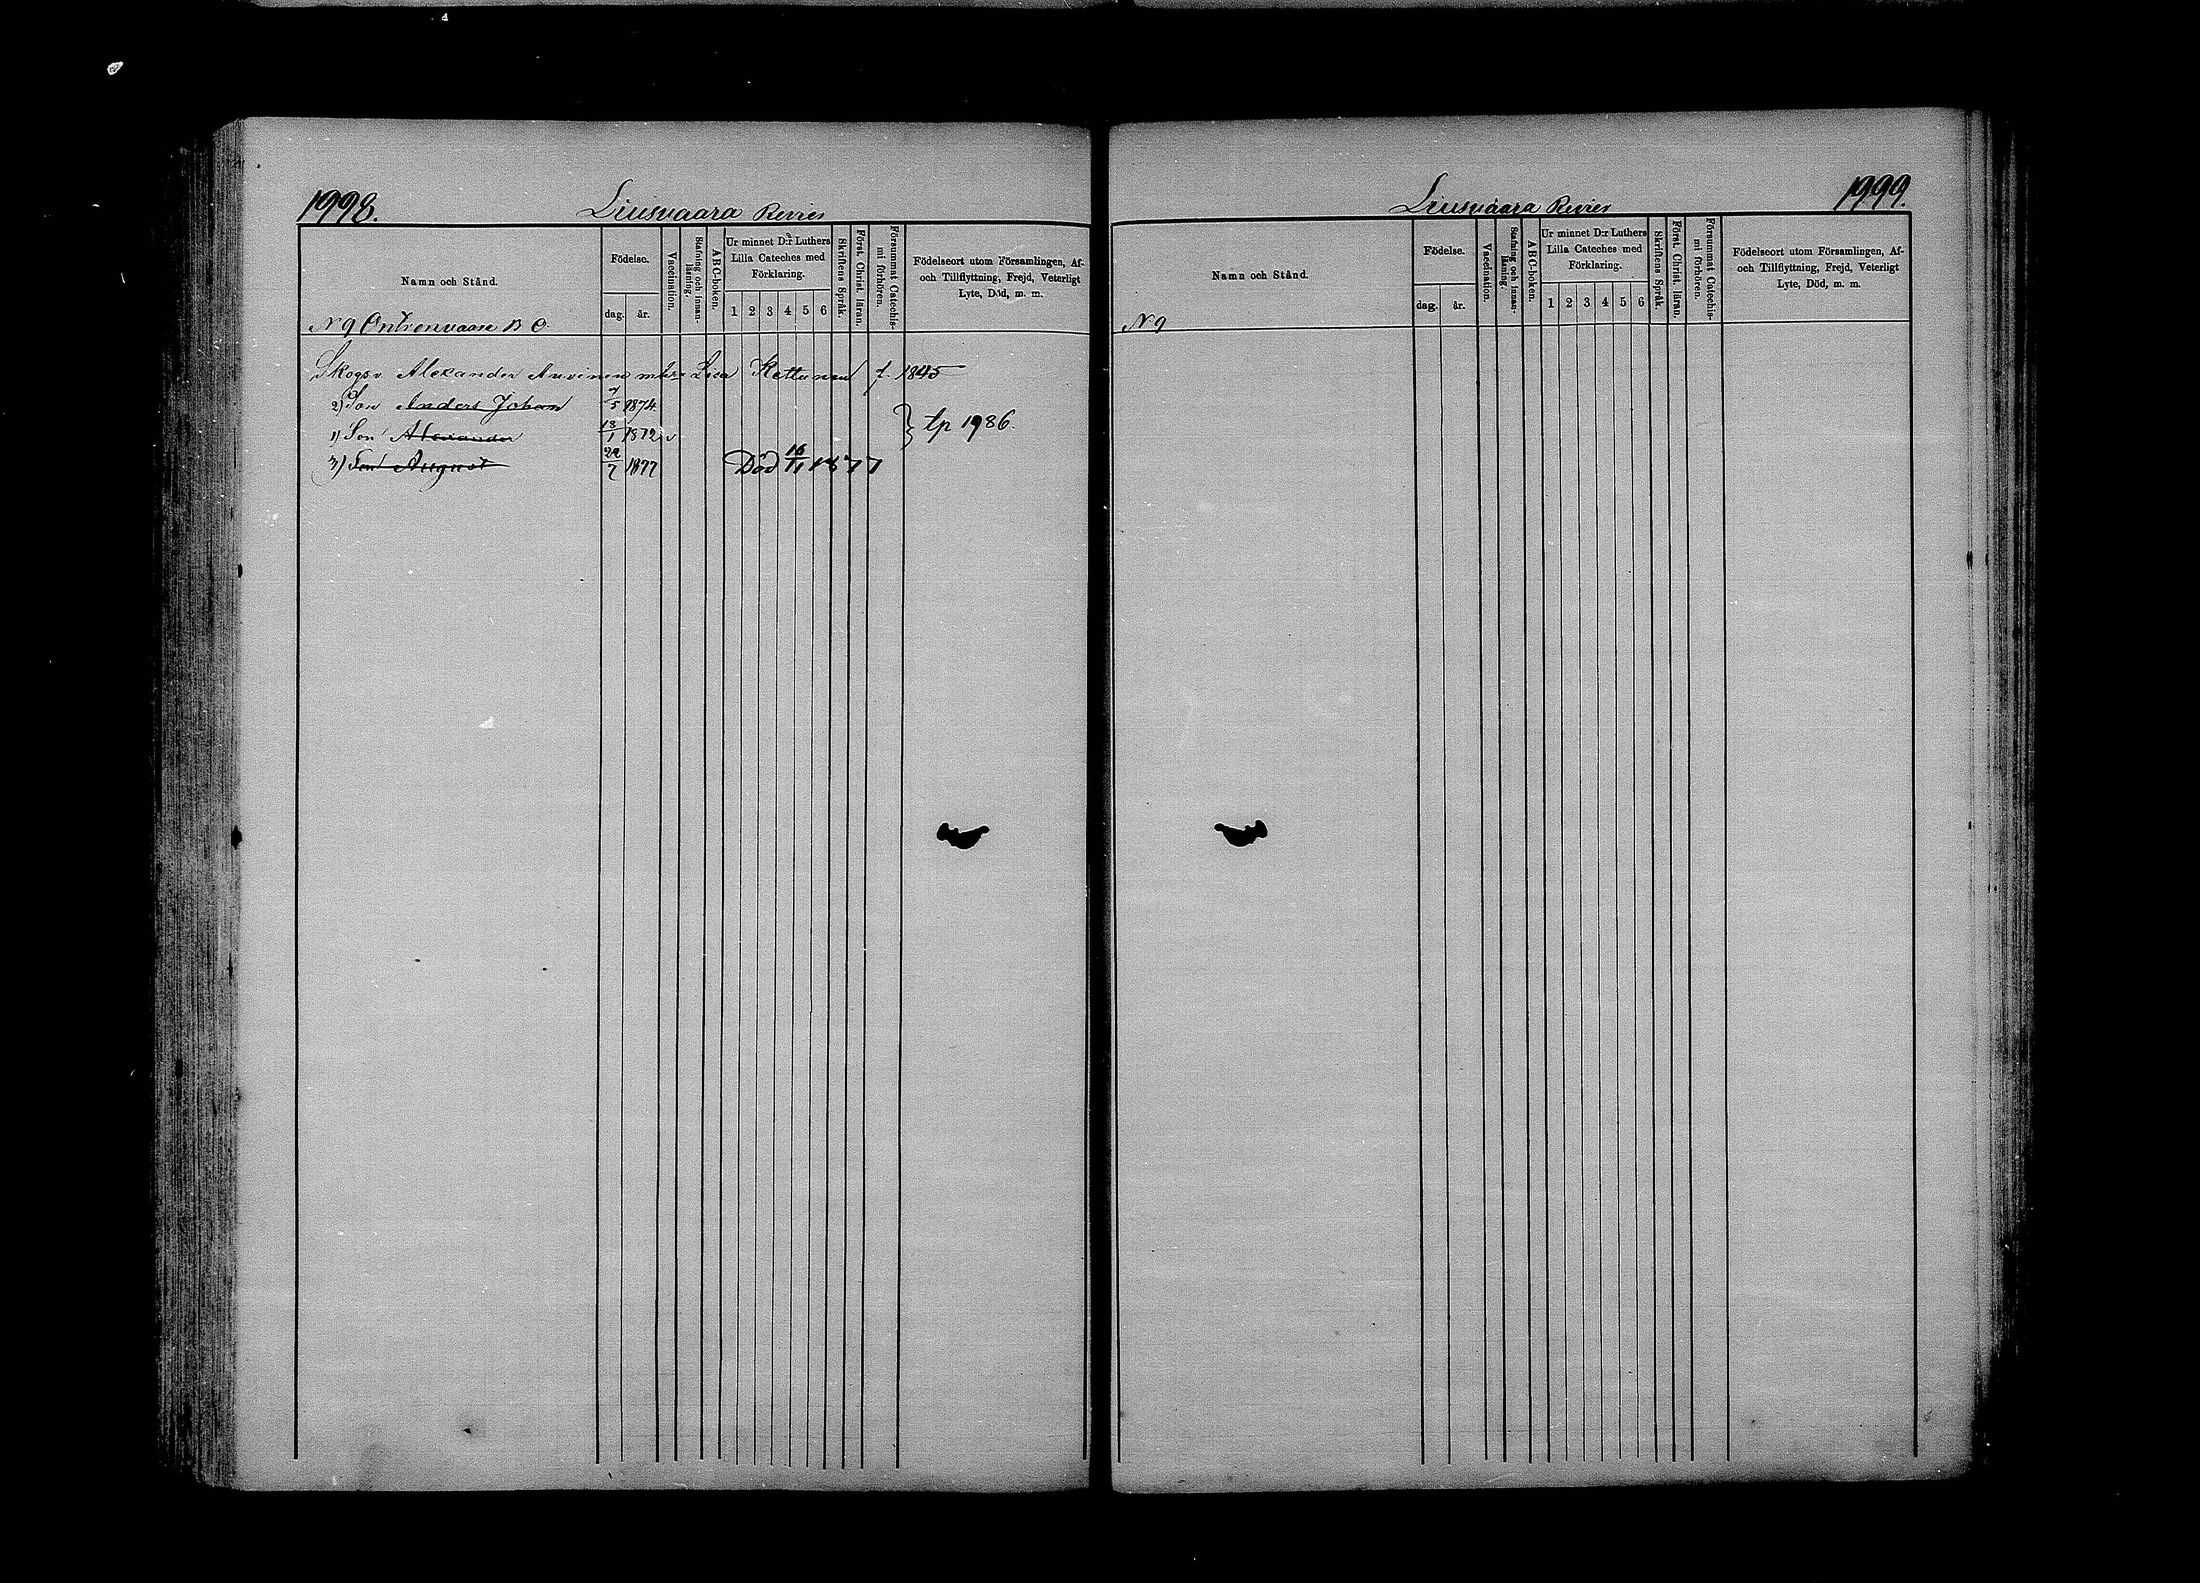 1998.
Liusvaara Revier
Namn och Stånd.
Födelse.
dag.
år.
Vaccination.
Stafning och innan-
läsning.
ABC-boken.
Ur minnet D:r Luthers
Lilla Cateches med
Förklaring.
1 2 3 4 5 6
Skriftens Språk.
Först. Christ. läran.
Försummat Catechis-
mi förhören.
Födelseort utom Församlingen, Af-
och Tillflyttning, Frejd, Veterligt
Lyte, Död, m. m.
N 9 B O.
Skogsv. Alexander Auvinen m hu Lisa Kettunen f. 1845
2) Son Anders Johan 7/5 1874
} tp 1986.
1) Son Alexander 13/1 1872 v
3) Son August 22/7 1877 Död 16/11 1877
Liusvaara Revier
1999.
Namn och Stånd.
Födelse.
dag.
år.
Vaccination.
Stafning och innan-
läsning.
ABC-boken.
Ur minnet D:r Luthers
Lilla Cateches med
Förklaring.
1 2 3 4 5 6
Skriftens Språk.
Först. Christ. läran.
Försummat Catechis-
mi förhören.
Födelseort utom Församlingen, Af-
och Tillflyttning, Frejd, Veterligt
Lyte, Död, m. m.
N 9